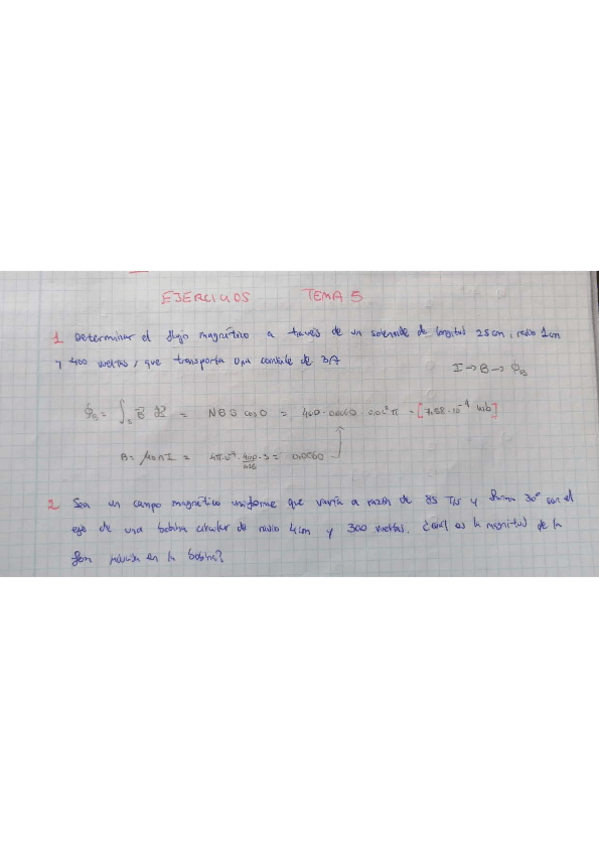 EJERCICIOS TEMA 5
1 Determinar el flujo magnético a través de un solenoide de longitud 25cm, radio 1cm
y 400 vueltas, que transporta una corriente de 3A
I → B → Φ_B
Φ_B = ∫_S B⃗ dS⃗ = N B S cos 0 = 400 · 0.0060 · 0.01² π = [7.58 · 10⁻⁴ Wb]
B = μ₀ n I = 4π·10⁻⁷ · 400/0.25 · 3 = 0.0060
2 Sea un campo magnético uniforme que varía a razón de T/s y forma 30° con el
eje de una bobina circular de radio 4cm y 300 vueltas. ¿Cuál es la magnitud de la
fem inducida en la bobina?